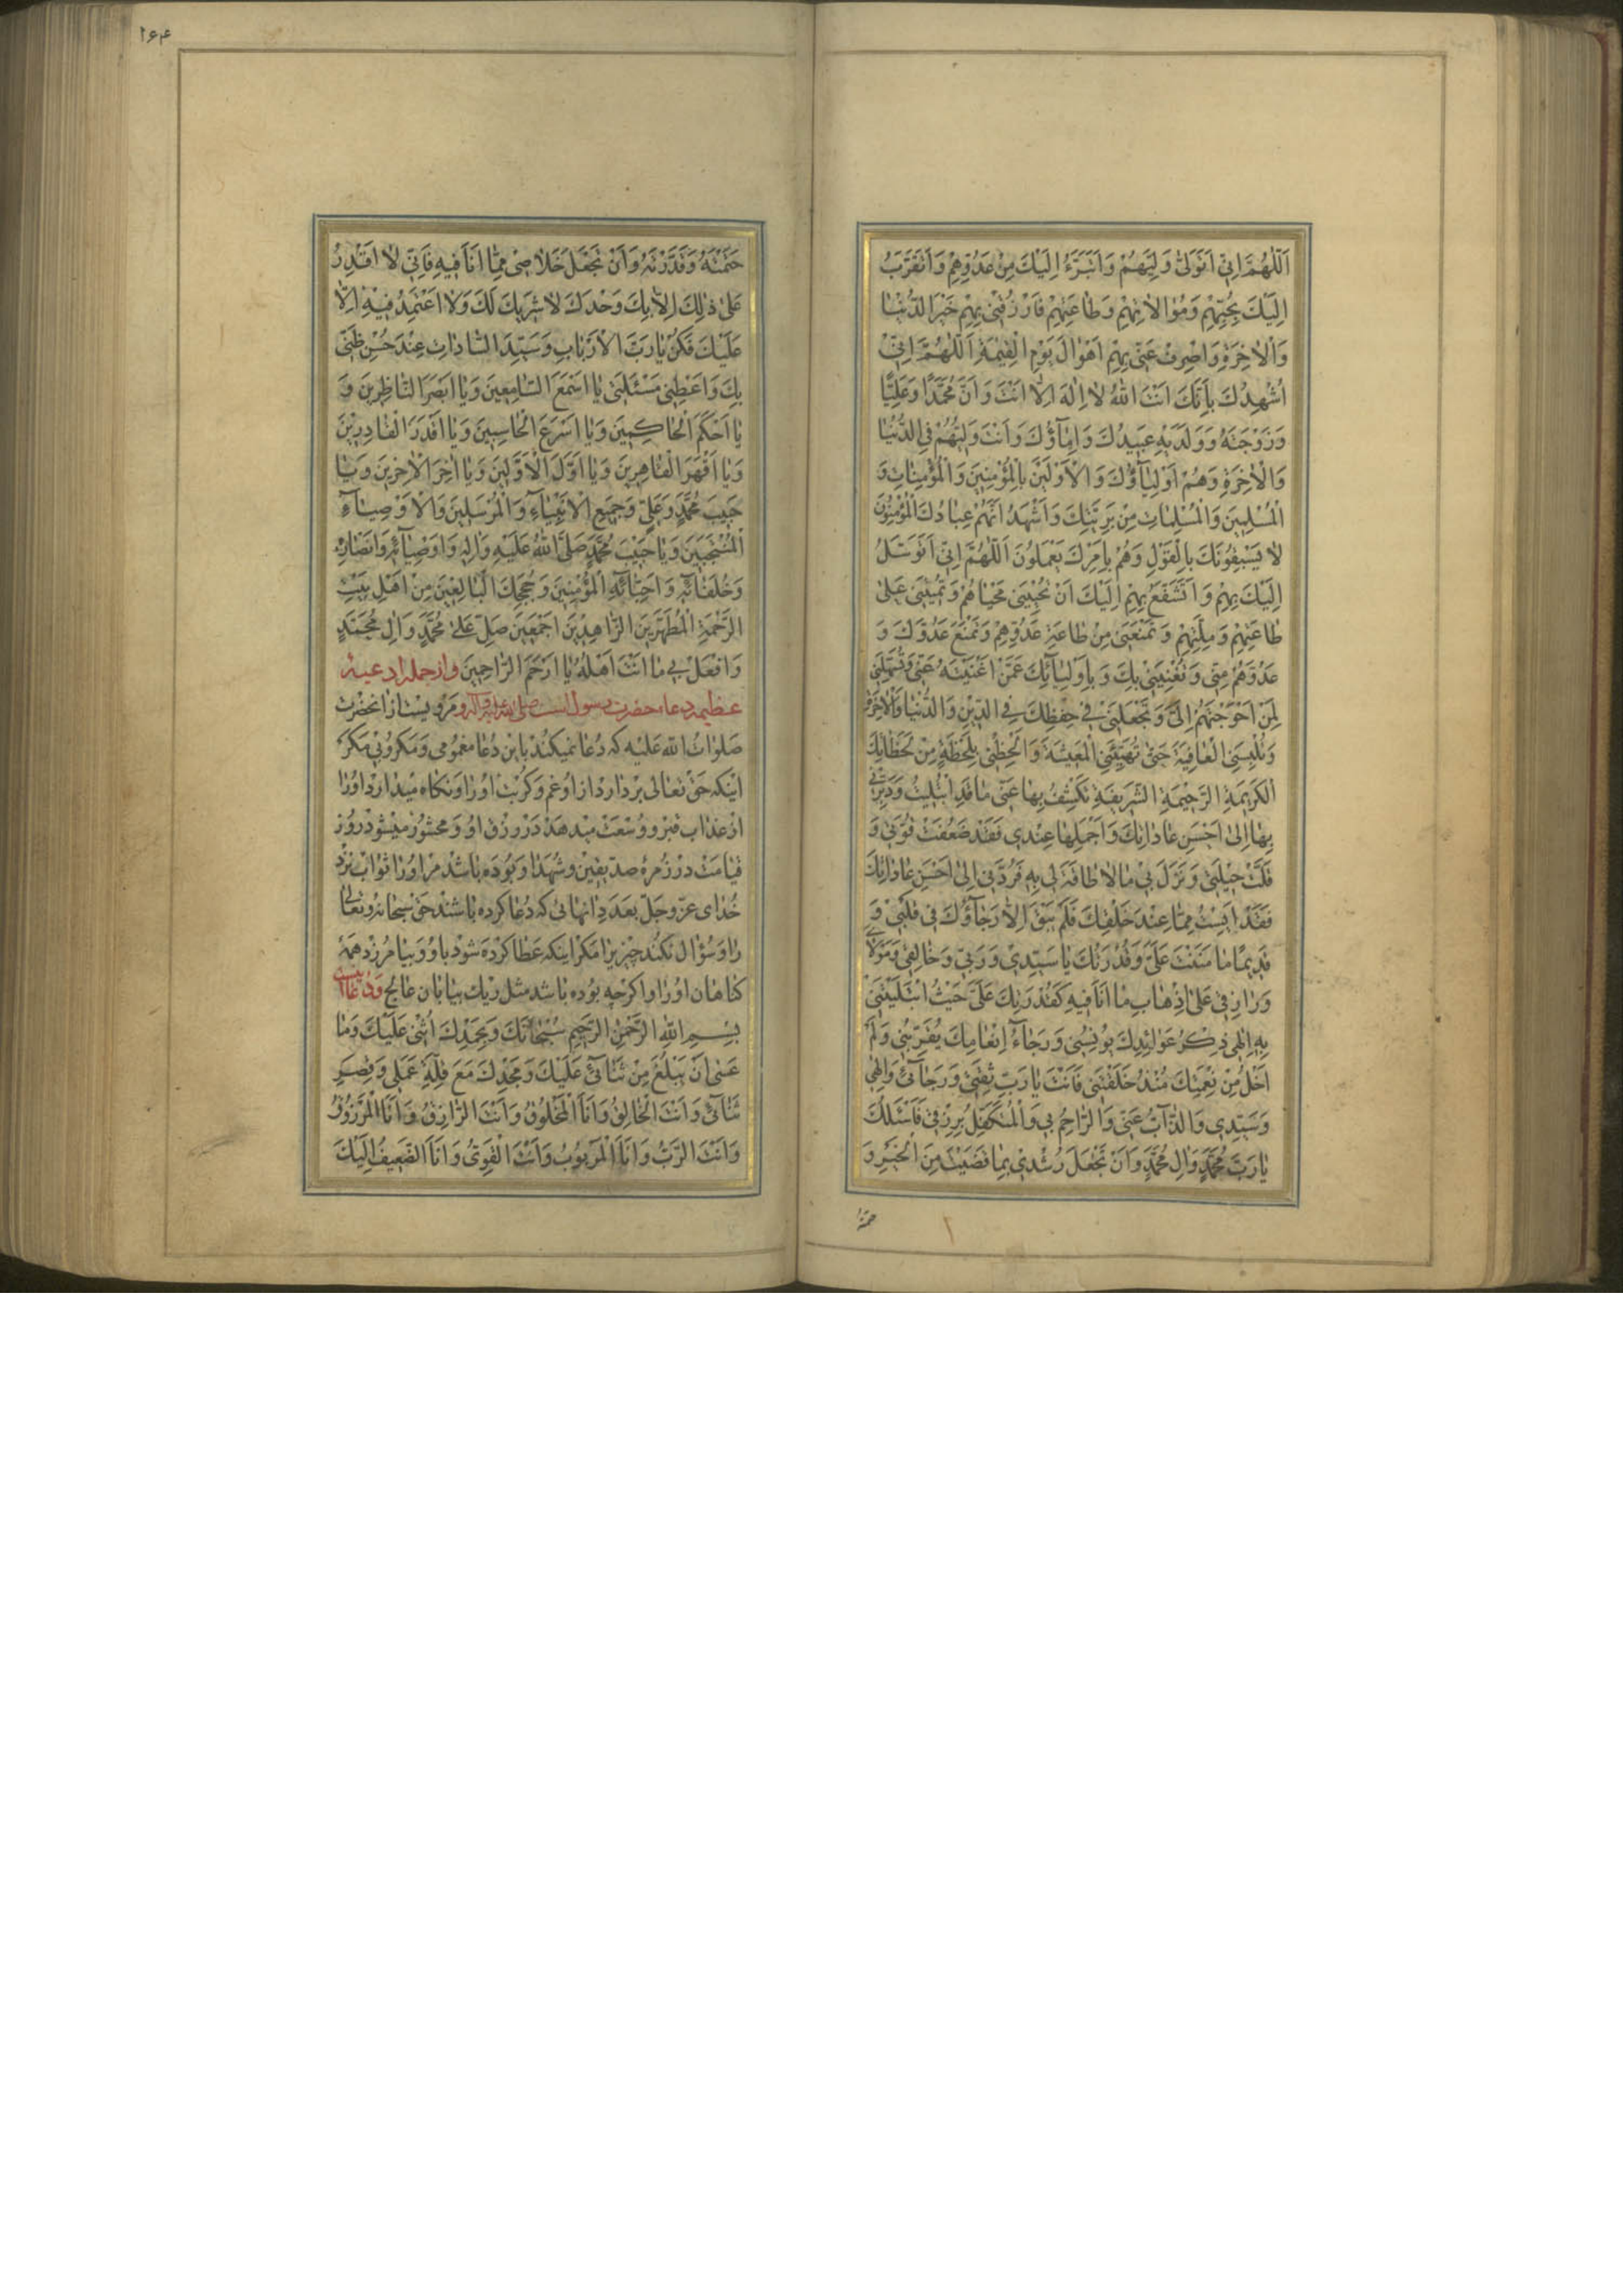 اَللّٰهُمَّ اِنّي اَتَوَلّىٰ وَلِيَّهُمْ وَاَتَبَرَّءُ اِلَيْكَ مِنْ عَدُوِّهِمْ وَاَتَقَرَّبُ
اِلَيْكَ بِحُبِّهِمْ وَمُوٰالاٰتِهِمْ وَطٰاعَتِهِمْ فَارْزُقْنيٖ بِهِمْ خَيْرَ الدُّنْيٰا
وَالْاٰخِرَةِ وَاصْرِفْ عَنّيٖ بِهِمْ اَهْوٰالَ يَوْمِ الْقِيٰمَةِ اَللّٰهُمَّ اِنّيٖ
اُشْهِدُكَ بِاَنَّكَ اَنْتَ اللهُ لاٰ اِلٰهَ اِلاّٰ اَنْتَ وَاَنَّ مُحَمَّدًا وَعَلِيًّا
وَزَوْجَتَهُ وَوَلَدَيْهِ عَبيٖدُكَ وَاِمٰآؤُكَ وَاَنْتَ وَلِيُّهُمْ فِي الدُّنْيٰا
وَالْاٰخِرَةِ وَهُمْ اَوْلِيٰآؤُكَ وَالْاَوْلَيْنَ بِالْمُؤْمِنيٖنَ وَالْمُؤْمِنٰاتِ وَ
الْمُسْلِميٖنَ وَالْمُسْلِمٰاتِ مِنْ بَرِيَّتِكَ وَاَشْهَدُ اَنَّهُمْ عِبٰادُكَ الْمُؤْمِنُونَ
لاٰ يَسْبِقُونَكَ بِالْقَوْلِ وَهُمْ بِاَمْرِكَ يَعْمَلُونَ اَللّٰهُمَّ اِنّيٖ اَتَوَسَّلُ
اِلَيْكَ بِهِمْ وَاَتَشَفَّعُ بِهِمْ اِلَيْكَ اَنْ تُحْيِيَنيٖ مَحْيٰاهُمْ وَتُميٖتَنيٖ عَلىٰ
طٰاعَتِهِمْ وَمِلَّتِهِمْ وَتَمْنَعَنيٖ مِنْ طٰاعَةِ عَدُوِّهِمْ وَتَمْنَعَ عَدُوَّكَ وَ
عَدُوَّهُمْ مِنّيٖ وَتُغْنِيَنيٖ بِكَ وَبِاَوْلِيٰآئِكَ عَمَّنْ اَغْنَيْتَهُ عَنّيٖ وَتُسَهِّلَنيٖ
لِمَنْ اَحْوَجْتَهُمْ اِلَيَّ وَتَجْعَلَنيٖ فيٖ حِفْظِكَ فِي الدّيٖنِ وَالدُّنْيٰا وَالْاٰخِرَةِ
وَتُلْبِسَنِي الْعٰافِيَةَ حَتّىٰ تُهَنِّئَنِي الْمَعيٖشَةَ وَالْحَظْنيٖ بِلَحْظَةٍ مِنْ لَحَظٰاتِكَ
الْكَريٖمَةِ الرَّحيٖمَةِ الشَّريٖفَةِ تَكْشِفُ بِهٰا عَنّيٖ مٰا قَدِ ابْتُليٖتُ وَدَبِّرْنيٖ
بِهٰا اِلىٰ اَحْسَنِ عٰادٰاتِكَ وَاَجْمَلِهٰا عِنْديٖ فَقَدْ ضَعُفَتْ قُوَّتيٖ وَ
قَلَّتْ حيٖلَتيٖ وَنَزَلَ بيٖ مٰا لاٰ طٰاقَةَ ليٖ بِهِ فَرُدَّنيٖ اِلىٰ اَحْسَنِ عٰادٰاتِكَ
فَقَدْ اَيِسْتُ مِمّٰا عِنْدَ خَلْقِكَ فَلَمْ يَبْقَ اِلاّٰ رَجٰآؤُكَ فيٖ قَلْبيٖ وَ
قَديٖمًا مٰا مَنَنْتَ عَلَيَّ وَقُدْرَتُكَ يٰا سَيِّديٖ وَرَبّيٖ وَخٰالِقيٖ وَمَوْلاٰيَ
وَرٰازِقيٖ عَلىٰ اِذْهٰابِ مٰا اَنَا فيٖهِ كَقُدْرَتِكَ عَلَيَّ حَيْثُ ابْتَلَيْتَنيٖ
بِهِ اِلٰهيٖ ذِكْرُ عَوٰائِدِكَ يُونِسُنيٖ وَرَجٰاءُ اِنْعٰامِكَ يُقَرِّبُنيٖ وَلَمْ
اَخْلُ مِنْ نِعْمَتِكَ مُنْذُ خَلَقْتَنيٖ فَاَنْتَ يٰا رَبِّ ثِقَتيٖ وَرَجٰآئيٖ وَاِلٰهيٖ
وَسَيِّديٖ وَالذّٰآبُّ عَنّيٖ وَالرّٰاحِمُ بيٖ وَالْمُتَكَفِّلُ بِرِزْقيٖ فَاَسْئَلُكَ
يٰا رَبَّ مُحَمَّدٍ وَاٰلِ مُحَمَّدٍ وَاَنْ تَجْعَلَ رُشْديٖ بِمٰا قَضَيْتَ مِنَ الْخَيْرِ وَ
حتمته
۱۶۴
حَتَمْتَهُ وَقَدَّرْتَهُ وَاَنْ تَجْعَلَ خَلاٰصيٖ مِمّٰا اَنَا فيٖهِ فَاِنّيٖ لاٰ اَقْدِرُ
عَلىٰ ذٰلِكَ اِلاّٰ بِكَ وَحْدَكَ لاٰ شَريٖكَ لَكَ وَلاٰ اَعْتَمِدُ فيٖهِ اِلاّٰ
عَلَيْكَ فَكُنْ يٰا رَبَّ الْاَرْبٰابِ وَسَيِّدَ السّٰادٰاتِ عِنْدَ حُسْنِ ظَنّيٖ
بِكَ وَاَعْطِنيٖ مَسْئَلَتيٖ يٰا اَسْمَعَ السّٰامِعيٖنَ وَيٰا اَبْصَرَ النّٰاظِريٖنَ وَ
يٰا اَحْكَمَ الْحٰاكِميٖنَ وَيٰا اَسْرَعَ الْحٰاسِبيٖنَ وَيٰا اَقْدَرَ الْقٰادِريٖنَ
وَيٰا اَقْهَرَ الْقٰاهِريٖنَ وَيٰا اَوَّلَ الْاَوَّليٖنَ وَيٰا اٰخِرَ الْاٰخِريٖنَ وَيٰا
حَبيٖبَ مُحَمَّدٍ وَعَلِيٍّ وَجَميٖعِ الْاَنْبِيٰآءِ وَالْمُرْسَليٖنَ وَالْاَوْصِيٰآءِ
الْمُنْتَجَبيٖنَ وَيٰا حَبيٖبَ مُحَمَّدٍ صَلَّى اللهُ عَلَيْهِ وَاٰلِهِ وَاَوْصِيٰآئِهِ وَاَنْصٰارِهِ
وَخُلَفٰآئِهِ وَاَحِبّٰآئِهِ الْمُؤْمِنيٖنَ وَحُجَجِكَ الْبٰالِغيٖنَ مِنْ اَهْلِ بَيْتِ
الرَّحْمَةِ الْمُطَهَّريٖنَ الزّٰاهِديٖنَ اَجْمَعيٖنَ صَلِّ عَلىٰ مُحَمَّدٍ وَاٰلِ مُحَمَّدٍ
وَافْعَلْ بيٖ مٰا اَنْتَ اَهْلُهُ يٰا اَرْحَمَ الرّٰاحِميٖنَ وازجمله ادعيهٔ
عظيمه دعاء حضرت رسول است صلى الله عليه واله ومرويست از انحضرت
صلوات الله عليه كه دعا نميكند باين دعا مغمومى ومكروبى مكر
اينكه حق تعالى برداردازاوغم وكربت اورا ونكاه ميدارد اورا
از عذاب قبر و وسعت ميدهد در رزق او ومحشور ميشود در روز
قيامت در زمرهٔ صديقين وشهدا وبوده باشد مر اورا ثواب نزد
خداى عز وجل بعدد انهائى كه دعا كرده باشند حق سبحانه وتعالى
را وسؤال نكند چيزيرا مكر اينكه عطا كرده شود باو وبيامرزد همهٔ
كناهان اورا واكرچه بوده باشد مثل ريك بيابان عالج ودعا اينست
بِسْمِ اللهِ الرَّحْمٰنِ الرَّحيٖمِ سُبْحٰانَكَ وَبِحَمْدِكَ اُثْنيٖ عَلَيْكَ وَمٰا
عَسىٰ اَنْ يَبْلُغَ مِنْ ثَنٰآئيٖ عَلَيْكَ وَمَجْدِكَ مَعَ قِلَّةِ عَمَليٖ وَقِصَرِ
ثَنٰآئيٖ وَاَنْتَ الْخٰالِقُ وَاَنَا الْمَخْلُوقُ وَاَنْتَ الرّٰازِقُ وَاَنَا الْمَرْزُوقُ
وَاَنْتَ الرَّبُّ وَاَنَا الْمَرْبُوبُ وَاَنْتَ الْقَوِيُّ وَاَنَا الضَّعيٖفُ اِلَيْكَ